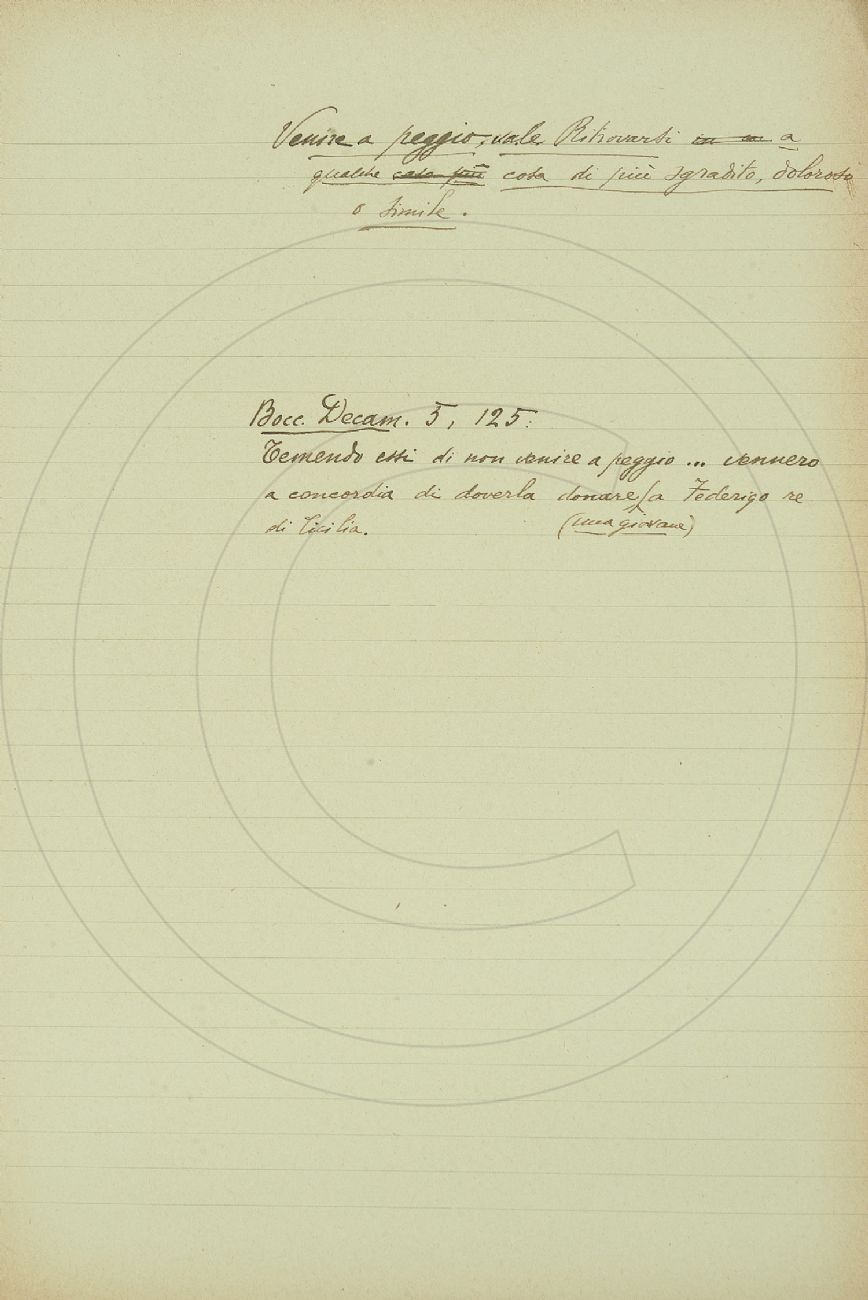 Venire a peggio, vale, Ritrovarsi a
qualche caso più cosa di più sgradito, doloroso
o simile.
Bocc. Decam. 5, 125:
Temendo essi di non venire a peggio ... vennero
a concordia di doverla donare a Federigo re
(una giovane)
di Cicilia.